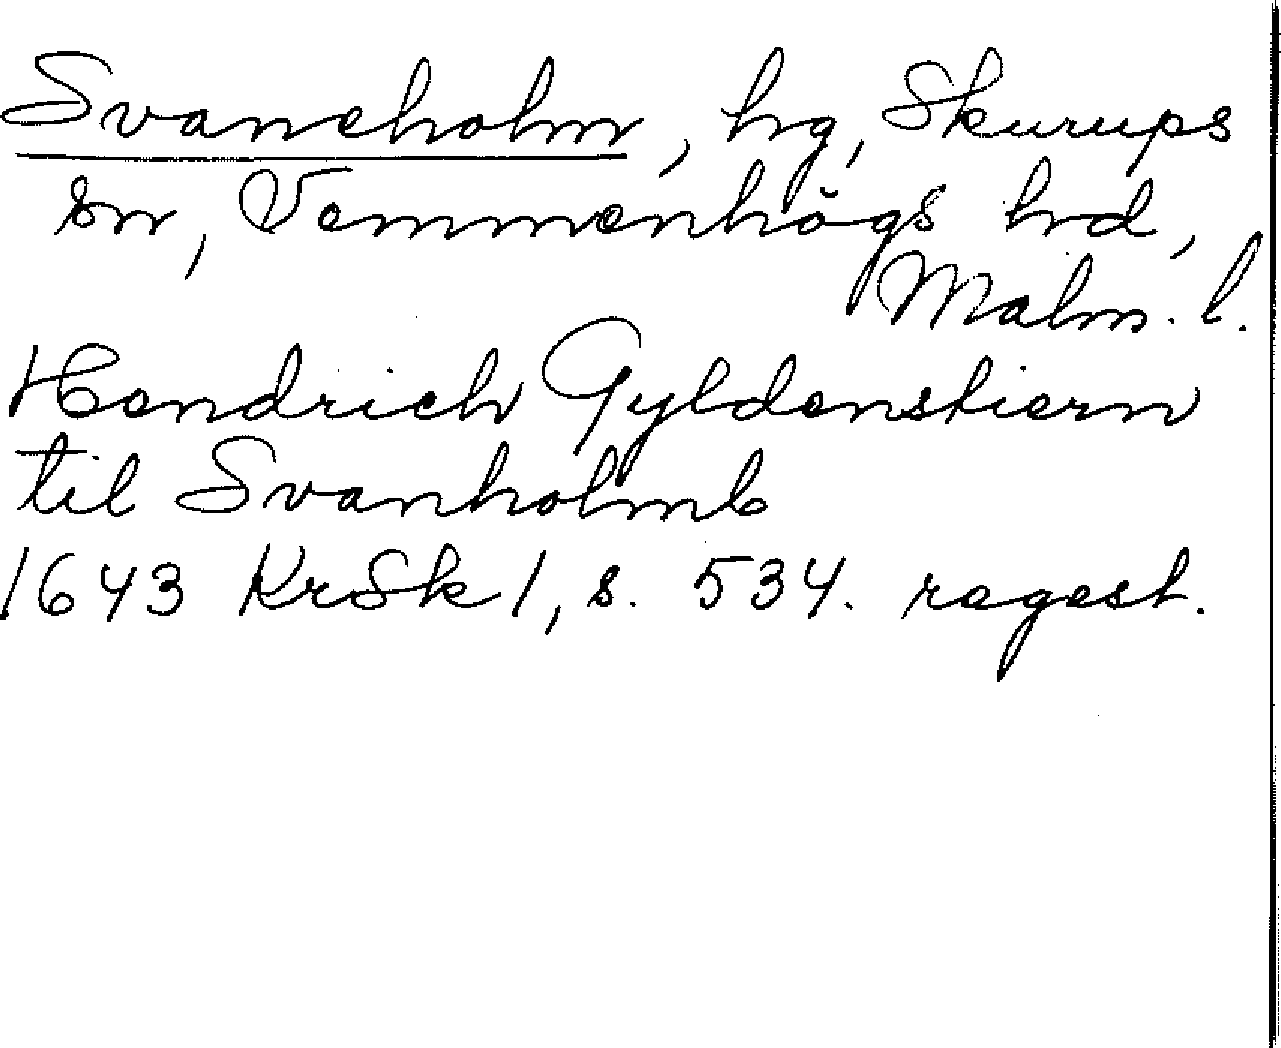 Svaneholm, hg, Skurups
sn, Vemmenhögs hrd,
Malm. l.
Hendrich Gyldenstiern
til Svanholmb
1643 KrSk 1, s. 534. regest.